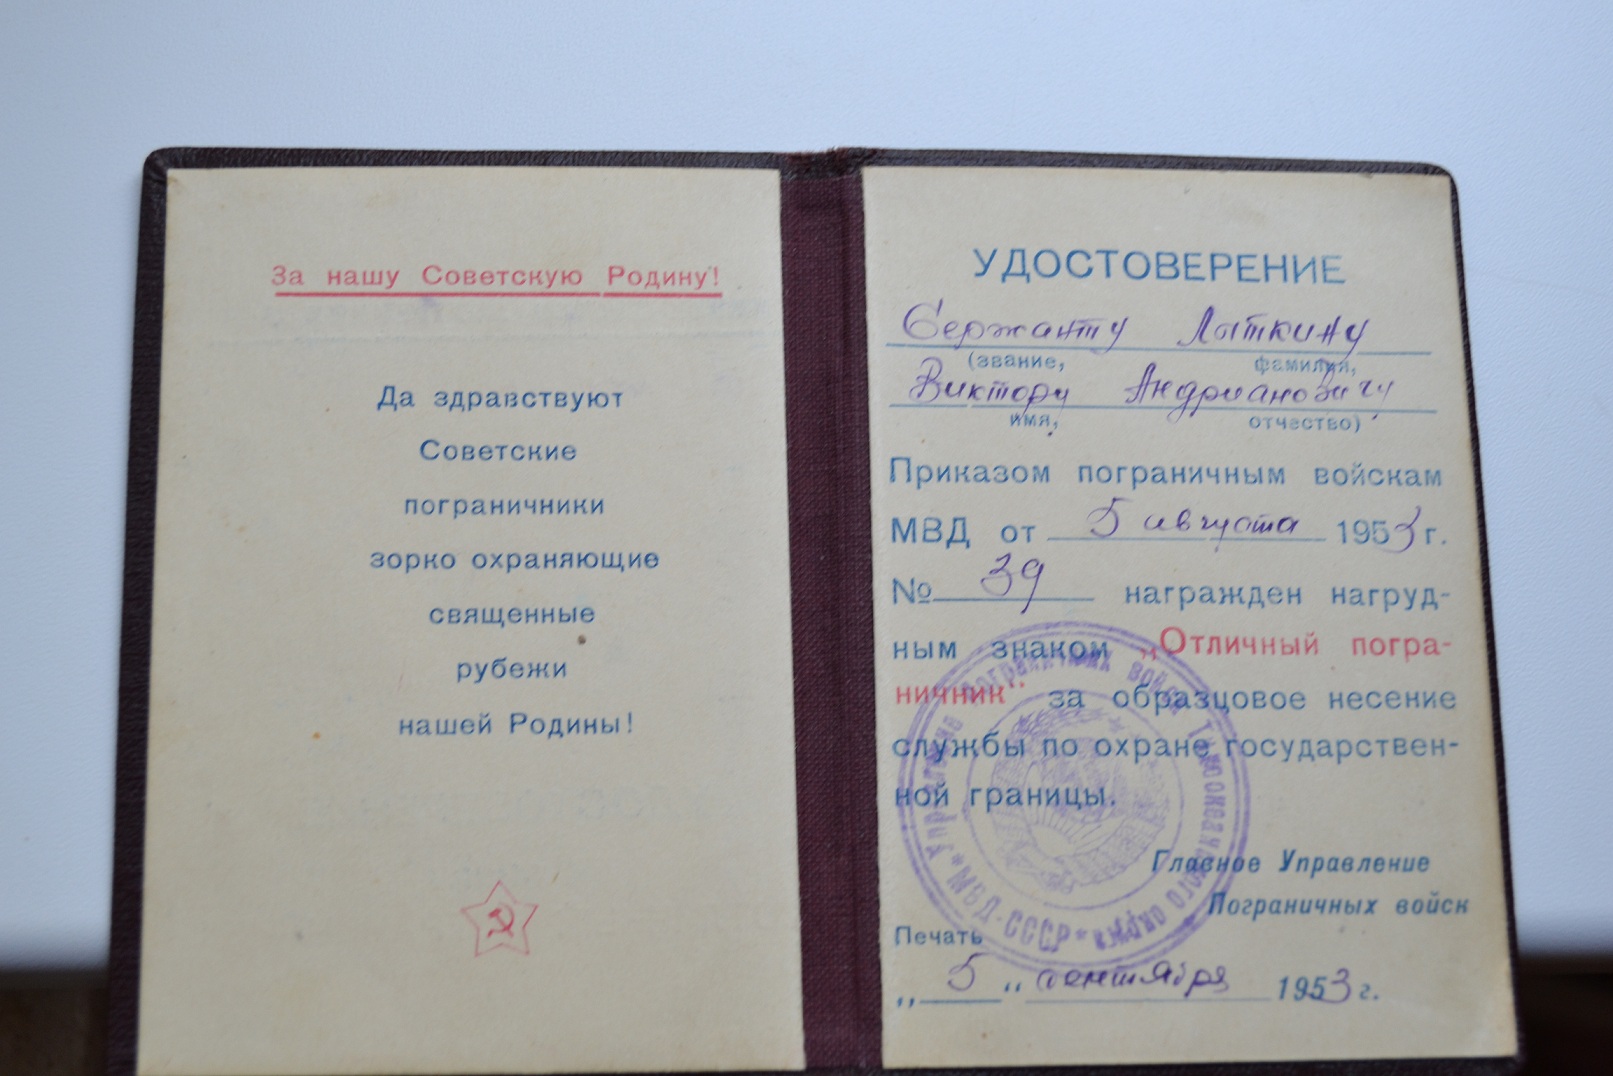 За нашу Советскую Родину!
Да здравствуют
Советские
пограничники
зорко охраняющие
священные
рубежи
нашей Родины!
УДОСТОВЕРЕНИЕ
Сержанту Лыткину
(звание, фамилия,
Виктору Андриановичу
имя, отчество)
Приказом пограничным войскам
МВД от 5 августа 1953 г.
№ 39 награжден нагруд-
ным знаком „Отличный погра-
ничник" за образцовое несение
службы по охране государствен-
ной границы.
Главное Управление
Пограничных войск
Печать
„ 5 " сентября 1953 г.
Управление пограничных войск Тихоокеанского округа * МВД-СССР *